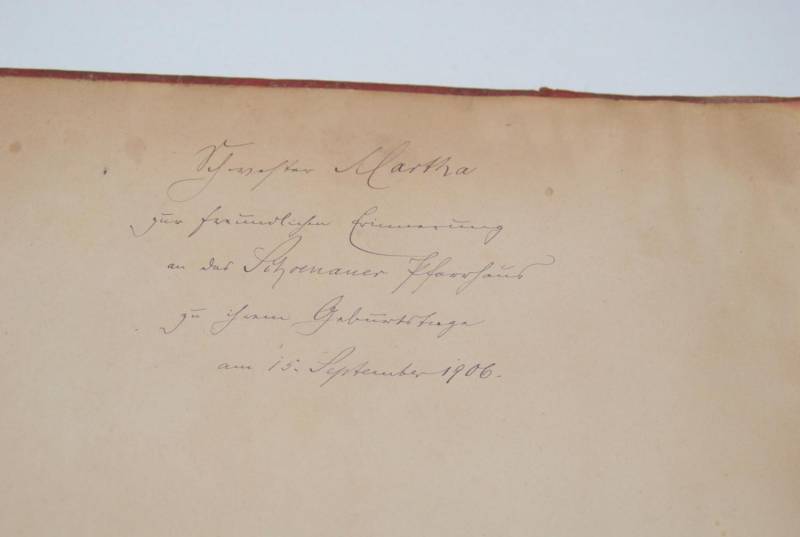 Schwester Martha
zur freundlichen Erinnerung
an das Schoenauer Pfarrhaus
zu ihrem Geburtstage
am 15. September 1906.